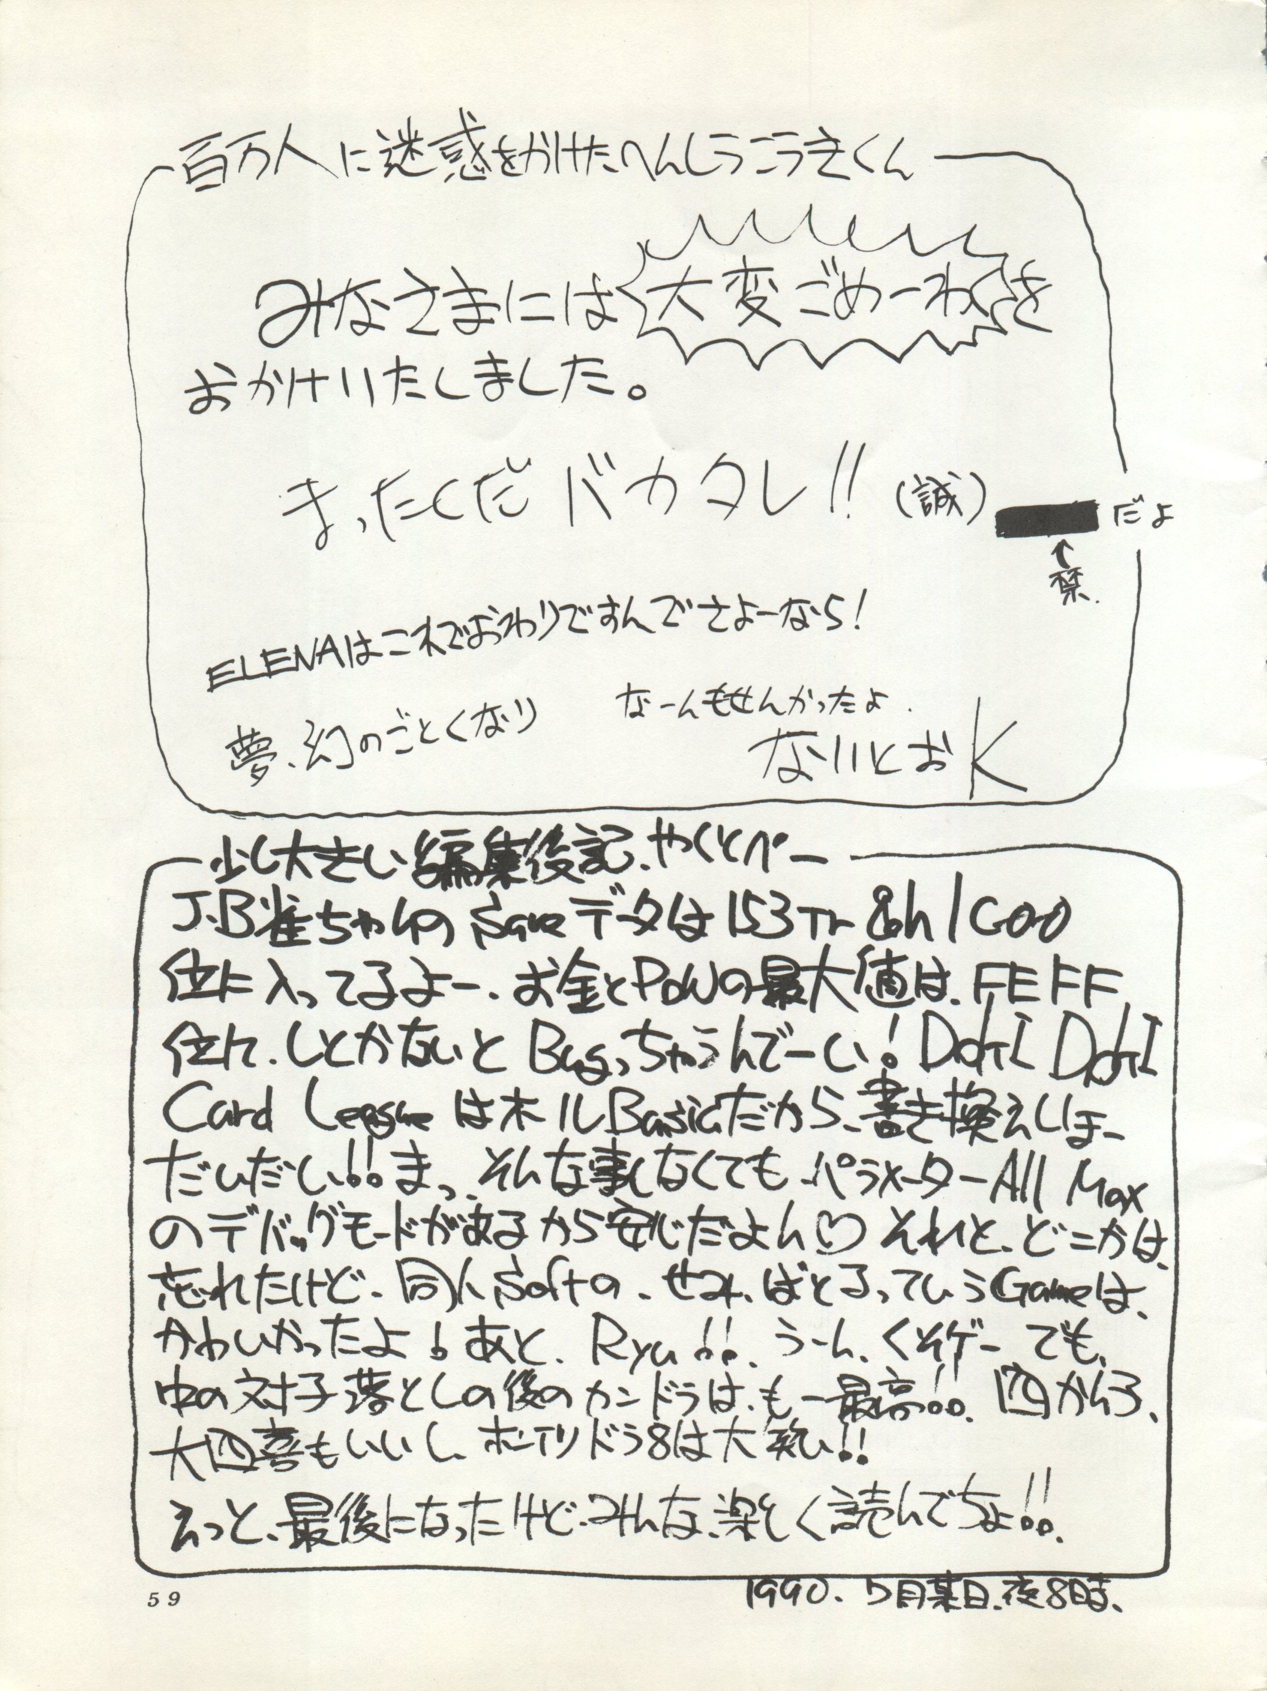 百万人に迷惑をかけたへんしうこうきくん
みなさまには大変ごめーわくを
おかけいたしました。
まったくだバカタレ!!(誠)
だよ
↑
禁.
ELENAはこれでおわりですんでさよーなら!
夢、幻のごとくなり
なーんもせんかったよ.
ないとおK
少し大きい編集後記、やくとぺー
J.B雀ちゃんのSaveデータは153Tr
位に入ってるよー、お金とPowの最大値は、FEFF
位に、しとかないとBugっちゃうんでーい!DokI DokI
Card LeagueはホルBasicだから、書き換えしほー
だいだい!!まっ、そんな事しなくても、パラメーターAll Max
のデバッグモードがあるから安心だよん♡それと、どこかは、
忘れたけど、同人Softの、せみ、ばとるっていうGameは、
かわいかったよ!あと、Ryu!!、うーん、くそゲーでも、
中の対子落としの後のカンドラは、も一最高!!、四かんろ、
大四喜もいいし、ホンイツドラ8は大好い!!
えっと、最後になったけど、みんな、楽しく読んでちょ!!、
1990.7月某日、夜8時、
59